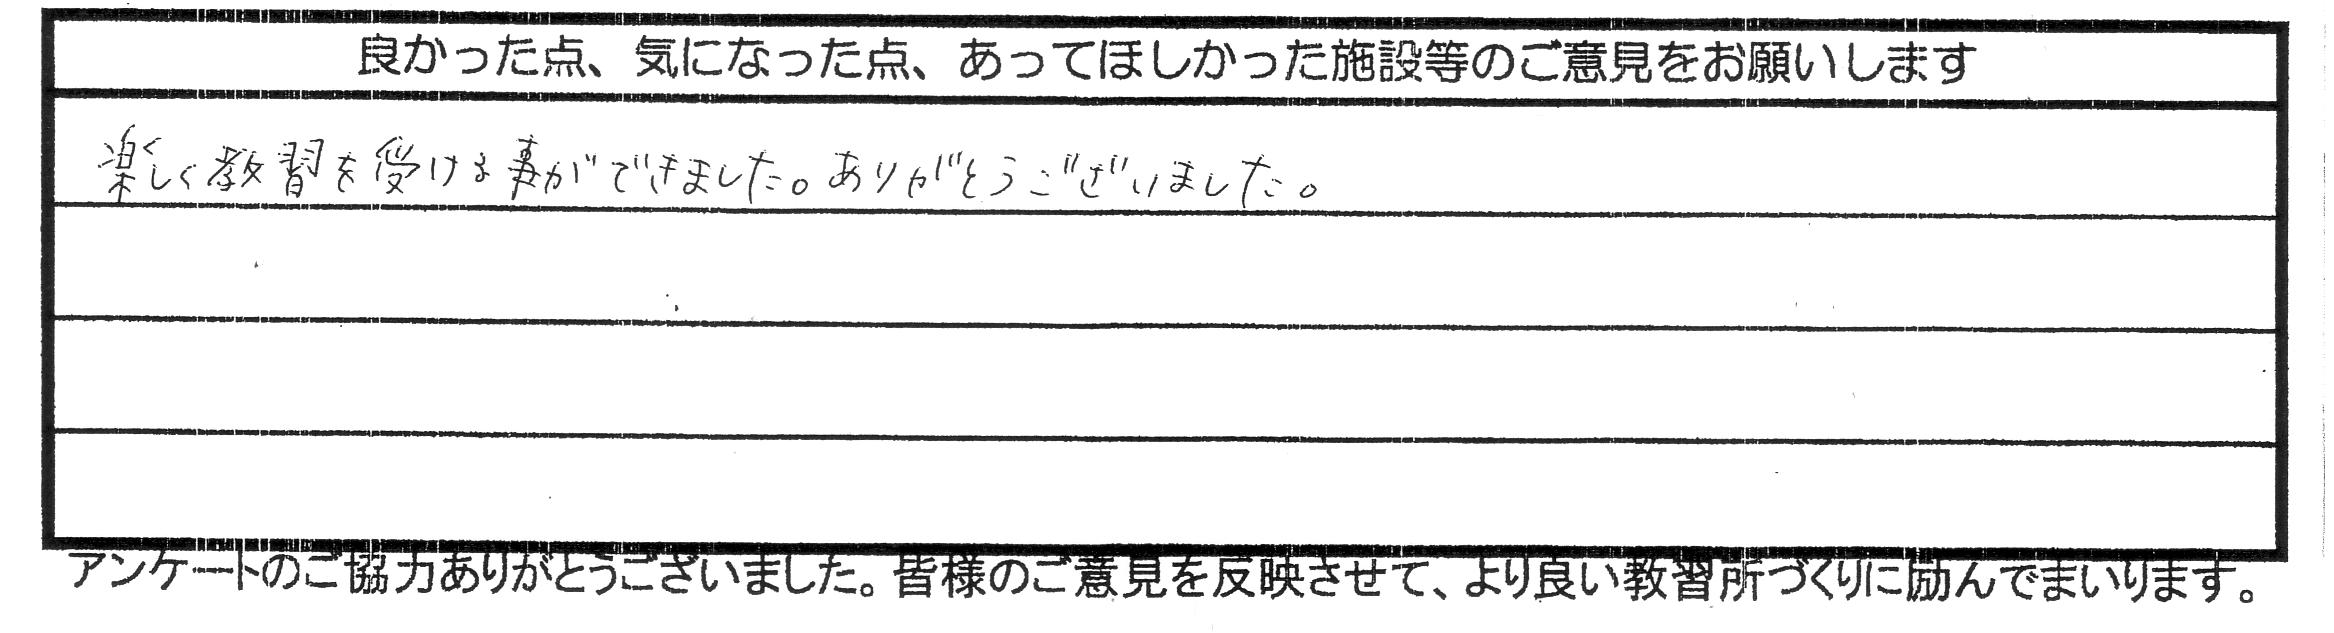 良かった点、気になった点、あってほしかった施設等のご意見をお願いします
楽しく教習を受ける事ができました。ありがとうございました。
アンケートのご協力ありがとうございました。皆様のご意見を反映させて、より良い教習所づくりに励んでまいります。